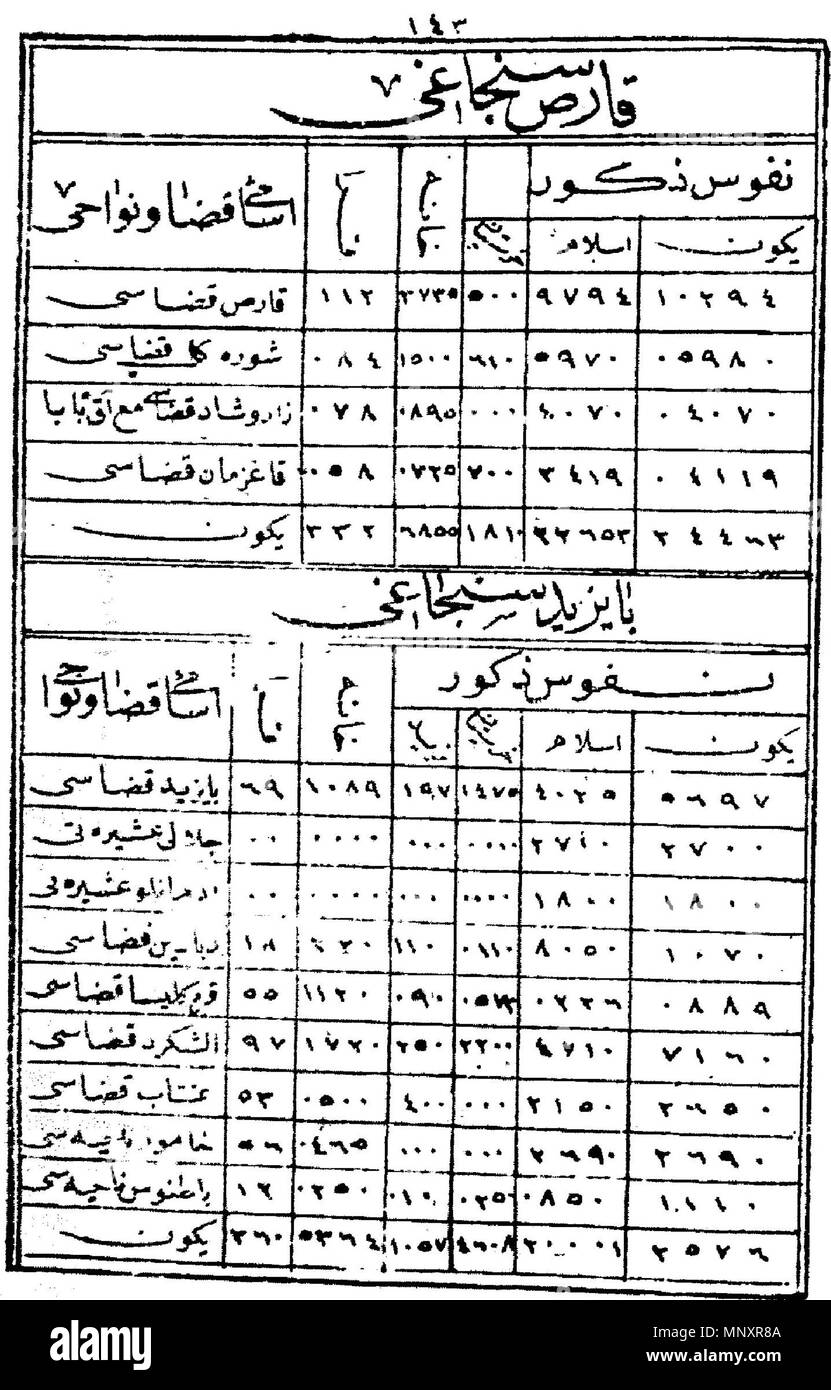 ١٤٣
قارص سنجاغی
اسامئ قضا و نواحی خانه نفوس ذكور
خرستیان اسلام یكون
قارص قضاسی ١١٢ ٣٧٣٥ ٥٠٠ ٩٧٩٤ ١٠٢٩٤
شوره كل قضاسی ٠٨٤ ١٥٠٠ ٦١٠ ٥٩٧٠ ٠٥٩٨٠
زاروشاد قضاسی مع آق بابا ٠٧٨ ٠٨٩٥ ٠٠٠ ٤٠٧٠ ٠٤٠٧٠
قاغزمان قضاسی ٠٥٨ ٠٧٢٥ ٧٠٠ ٣٤١٩ ٠٤١١٩
یكون ٣٣٢ ٦٨٥٥ ١٨١٠ ٢٢٦٥٣ ٢٤٤٦٣
بایزید سنجاغی
اسامئ قضا و نواحی خانه نفوس ذكور
اسلام یكون
بایزید قضاسی ٦٩ ١٠٨٩ ١٩٧ ١٤٧٥ ٤٠٢٥ ٥٦٩٧
جلالی عشیره تی ٠٠ ٠٠٠٠ ٠٠٠ ٠٠٠٠ ٢٧١٠ ٢٧٠٠
عشیره تی ٠٠ ٠٠٠٠ ٠٠٠ ٠٠٠٠ ١٨٠٠ ١٨٠٠
قضاسی ١٨ ١١٠ ٠١١٠ ٨٠٥٠ ١٠٧٠
قره كلیسا قضاسی ٥٥ ١١٢٠ ٠٩٠ ٠٨٨٩
الشكرد قضاسی ٩٧ ١٧٢٠ ٢٥٠ ٢٢٠٠ ٤٧١٠ ٧١٦٠
عنتاب قضاسی ٥٣ ٠٥٠٠ ٤٠٠ ٠٠٠ ٢١٥٠ ٢٦٥٠
خامور ناحیه سی ٥٦ ٠٤٦٥ ٠٠٠ ٠٠٠ ٢٦٩٠ ٢٦٩٠
ناحیه سی ١٢ ٠٢٥٠ ٠١٠ ٠٢٥٠ ٠٨٥٠ ١١١٠
یكون ٣٦٠ ٥٣٦٤ ١٠٥٧ ٤٦٠٨ ٢٠٠٠١ ٢٥٧٦
alamy
Image ID: MNXR8A
www.alamy.com